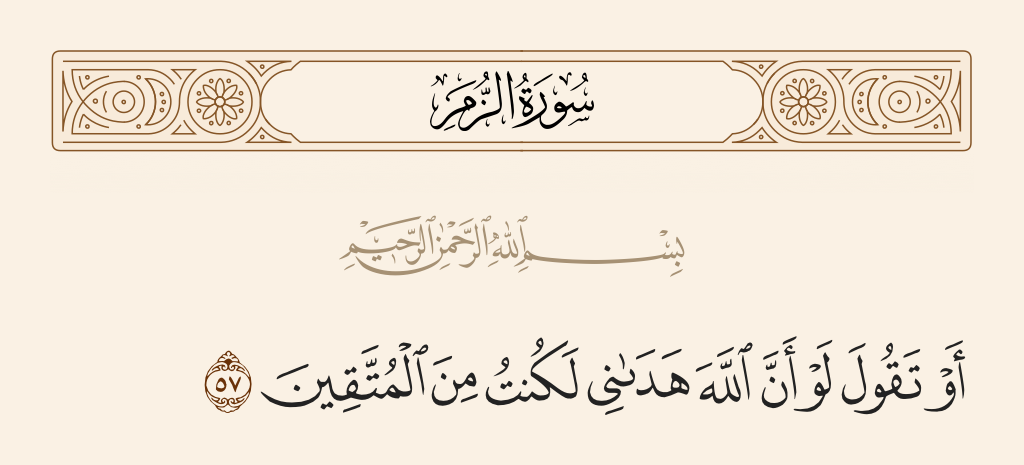 سُورَةُ الزُّمَرِ
بِسْمِ ٱللَّهِ ٱلرَّحْمَٰنِ ٱلرَّحِيمِ
أَوْ تَقُولَ لَوْ أَنَّ ٱللَّهَ هَدَىٰنِى لَكُنتُ مِنَ ٱلْمُتَّقِينَ ٥٧